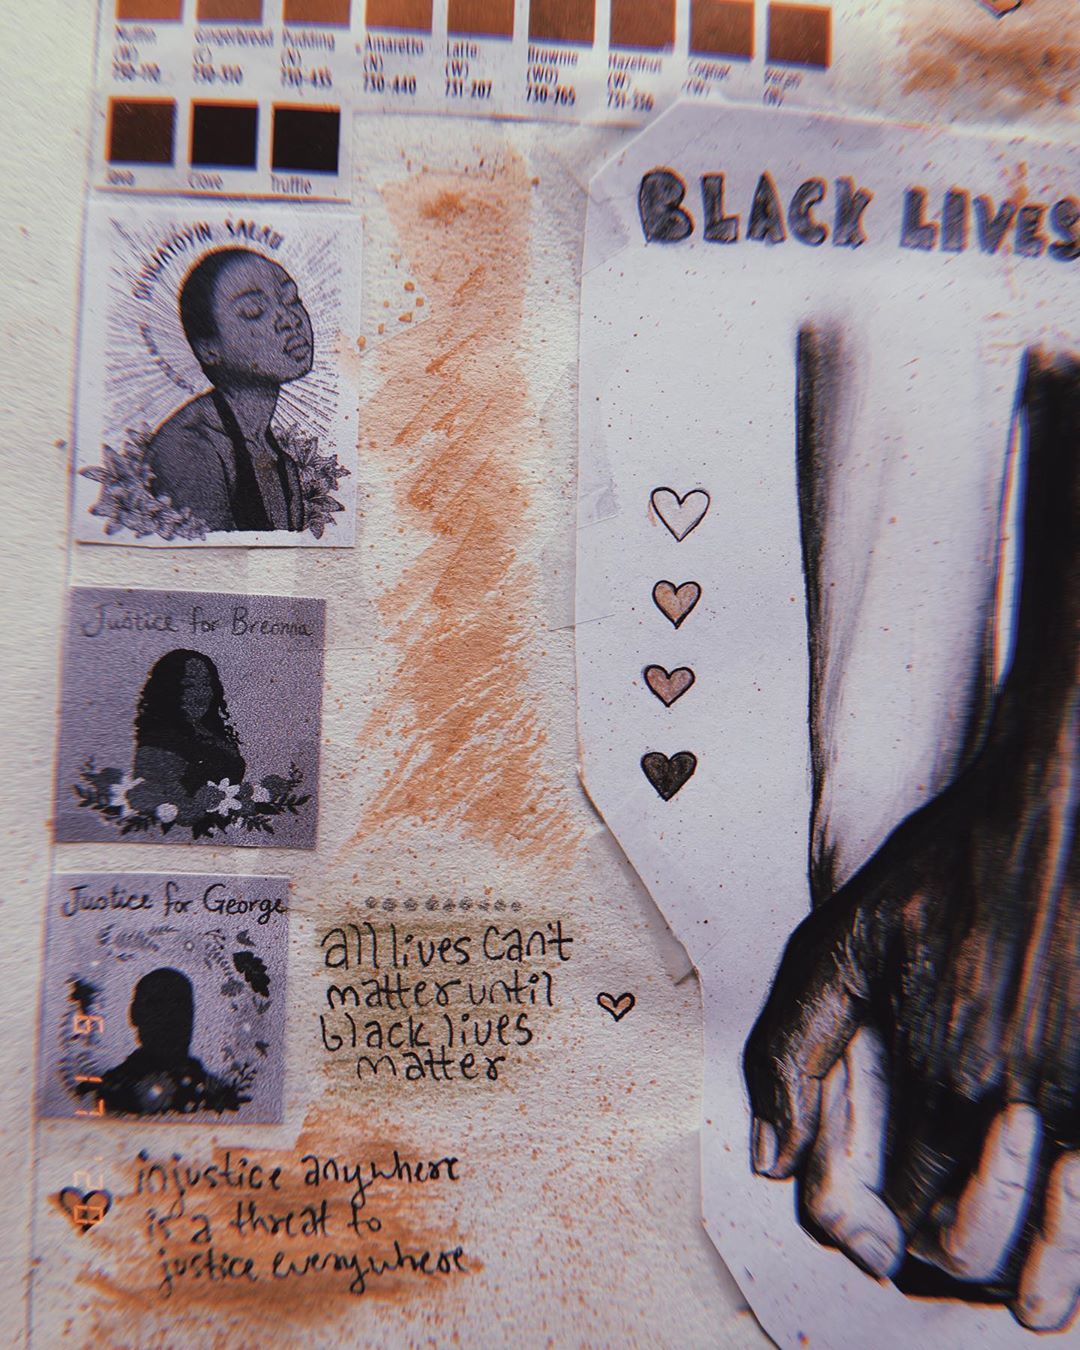 Gingerbread
(C)
750-310
Pudding
(N)
750-435
Amaretto
(N)
730-440
Latte
(W)
731-207
Brownie
(WO)
730-765
Hazelnut
(W)
731-336
Cognac
(W)
Pecan
Java
Clove
Truffle
SALAU
BLACK LIVES
Justice for Breonna
Justice for George
all lives can't
matter until
black lives
matter
injustice anywhere
is a threat to
justice everywhere